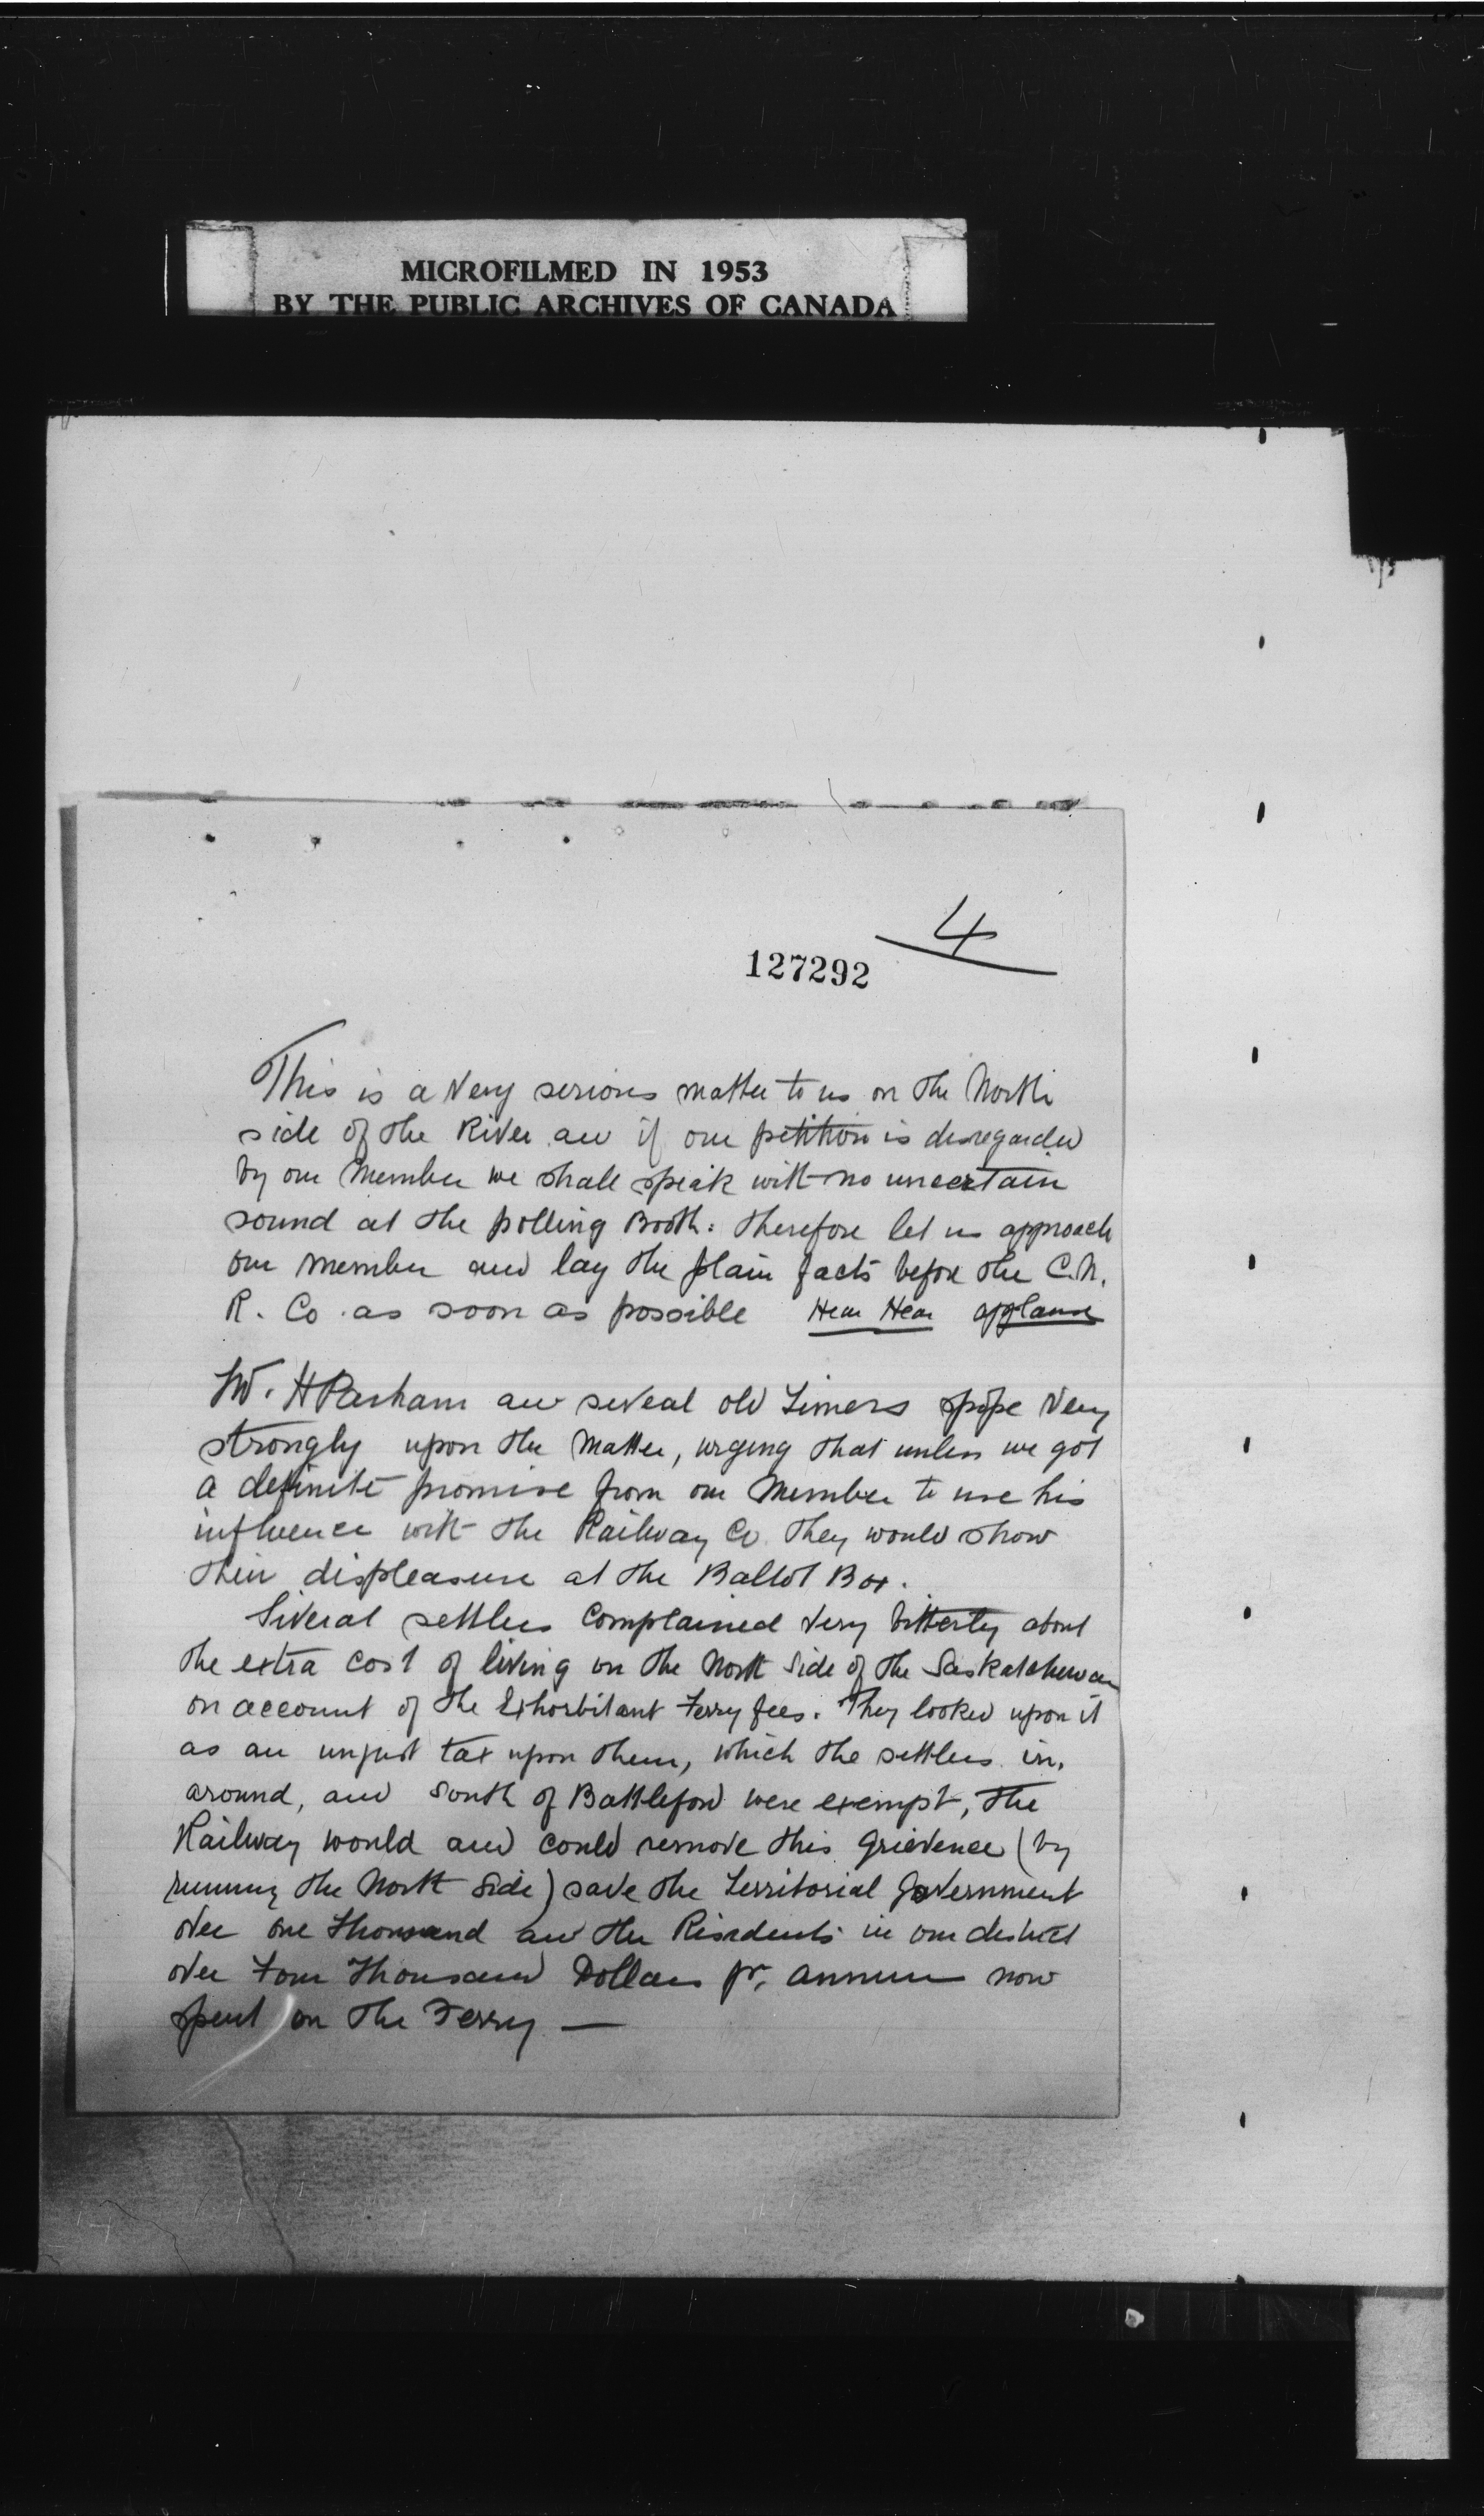 MICROFILMED IN 1953
BY THE PUBLIC ARCHIVES OF CANADA
4
127292
This is a very serious matter to us on the North
side of the River and if our petition is disregarded
by our Member we shall speak with no uncertain
sound at the polling Booth: therefore let us approach
our member and lay the plain facts before the C.N.
R. Co. as soon as possible Hear Hear applause
W. H Parham and several old Timers spoke very
strongly upon the matter, urging that unless we got
a definite promise from our Member to use his
influence with the Railway Co. they would show
their displeasure at the Ballot Box.
Several settlers complained very bitterly about
the extra cost of living on the North Side of the Saskatchewan
on account of the Exhorbitant Ferry fees. They looked upon it
as an unjust tax upon them, which the settlers in,
around, and South of Battleford were exempt, The
Railway would and could remove this Grievence (by
running the North Side) save the Territorial Government
over one thousand and the Residents in our district
over four Thousand Dollars pr. annum now
spent on the Ferry —